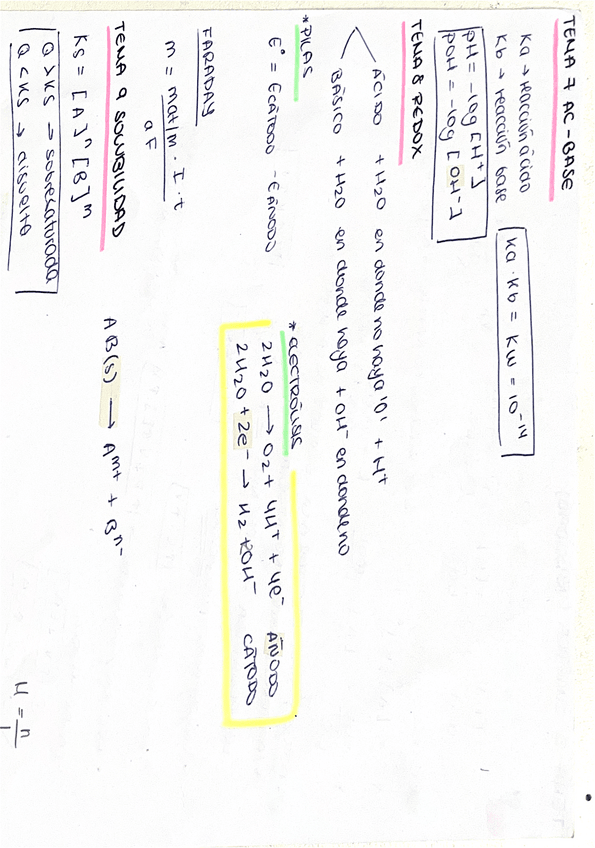 TEMA 7 AC-BASE
Ka → reacción ácido
Kb → reacción base
Ka · Kb = Kw = 10⁻¹⁴
pH = -log [H⁺]
pOH = -log [OH⁻]
TEMA 8 REDOX
ÁCIDO + H2O en donde no haya 'O' + H⁺
BÁSICO + H2O en donde haya + OH⁻ en donde no
*PILAS
E° = ECÁTODO - EÁNODO
*ELECTRÓLISIS
2H2O → O2 + 4H⁺ + 4e⁻ ÁNODO
2H2O + 2e⁻ → H2 + 2OH⁻ CÁTODO
FARADAY
m = mat/m · I · t
aF
TEMA 9 SOLUBILIDAD
Ks = [A]ⁿ [B]ᵐ
AB(s) → Aᵐ⁺ + Bⁿ⁻
Q > Ks → sobresaturada
Q < Ks → disuelto